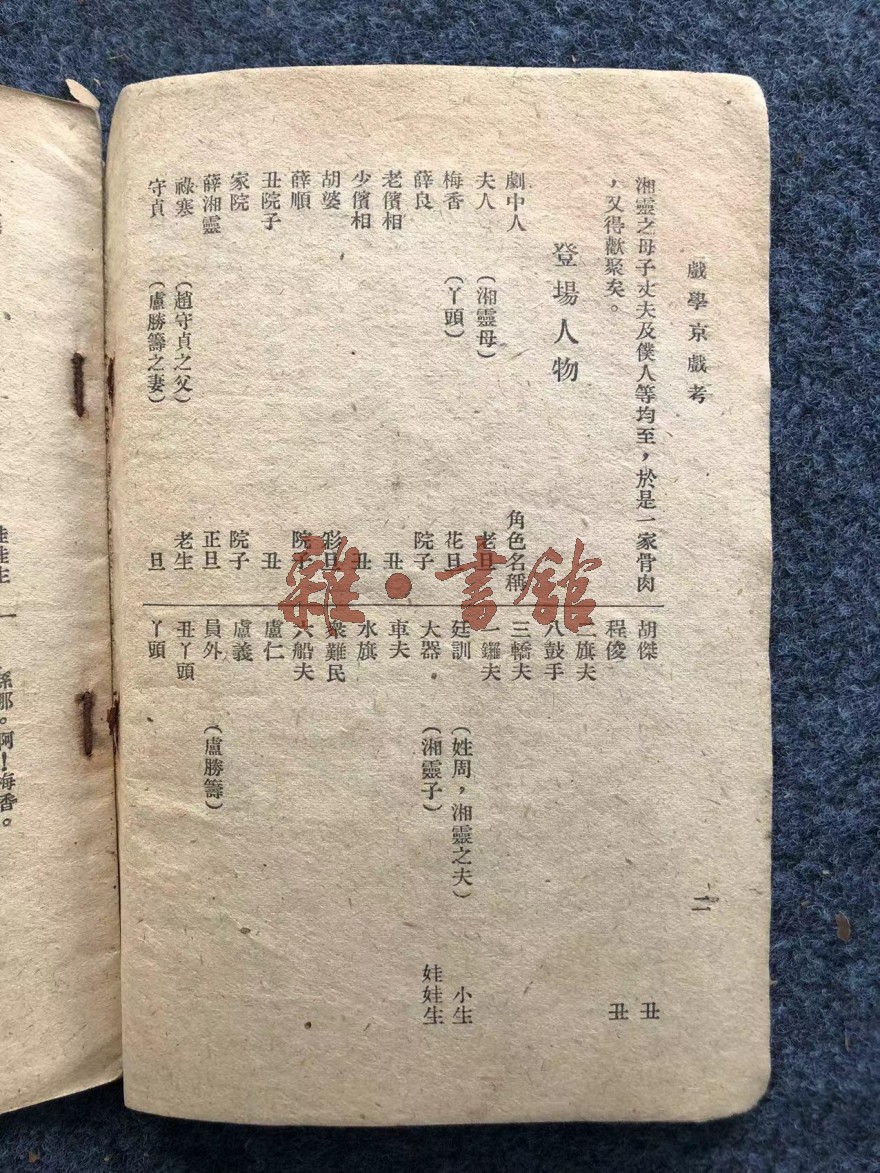 戲學京戲考
二
湘靈之母子丈夫及僕人等均至，於是一家骨肉
，又得歡聚矣。
登場人物
劇中人 角色名稱
夫人 （湘靈母） 老旦
梅香 （丫頭） 花旦
薛良 院子
老儐相 丑
少儐相 丑
胡婆 彩旦
薛順 院子
丑院子 丑
家院 院子
薛湘靈 正旦
祿寒 （趙守貞之父） 老生
守貞 （盧勝籌之妻） 旦
胡傑 丑
程俊 丑
二旗夫
八鼓手
三轎夫
一鑼夫
廷訓 （姓周，湘靈之夫） 小生
大器． （湘靈子） 娃娃生
車夫
水旗
衆難民
六船夫
盧仁
盧義
員外 （盧勝籌）
丑丫頭
丫頭
雜·書館
孫那。啊！梅香。